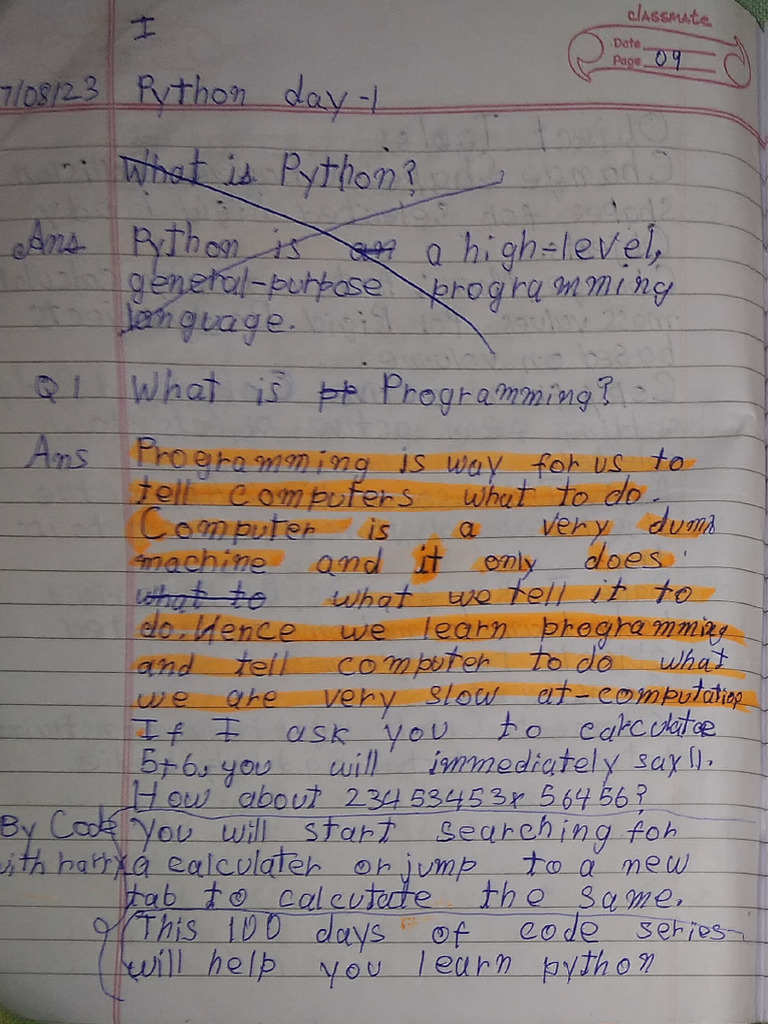 I
classmate
Date
Page 09
7/08/23 Python day-1
What is Python?
Ans Python is an a high-level,
general-purpose programming
language.
Q1 What is pr Programming?
Ans Programming is way for us to
tell computers what to do.
Computer is a very dumb
machine and it only does
what to what we tell it to
do. Hence we learn programming
and tell computer to do what
we are very slow at-computation
If I ask you to calculate
5+6, you will immediately say 11.
How about 23453453x 56456?
By Code You will start searching for
ith harry a calculater or jump to a new
tab to calcutate the same.
This 100 days of code series
will help you learn python